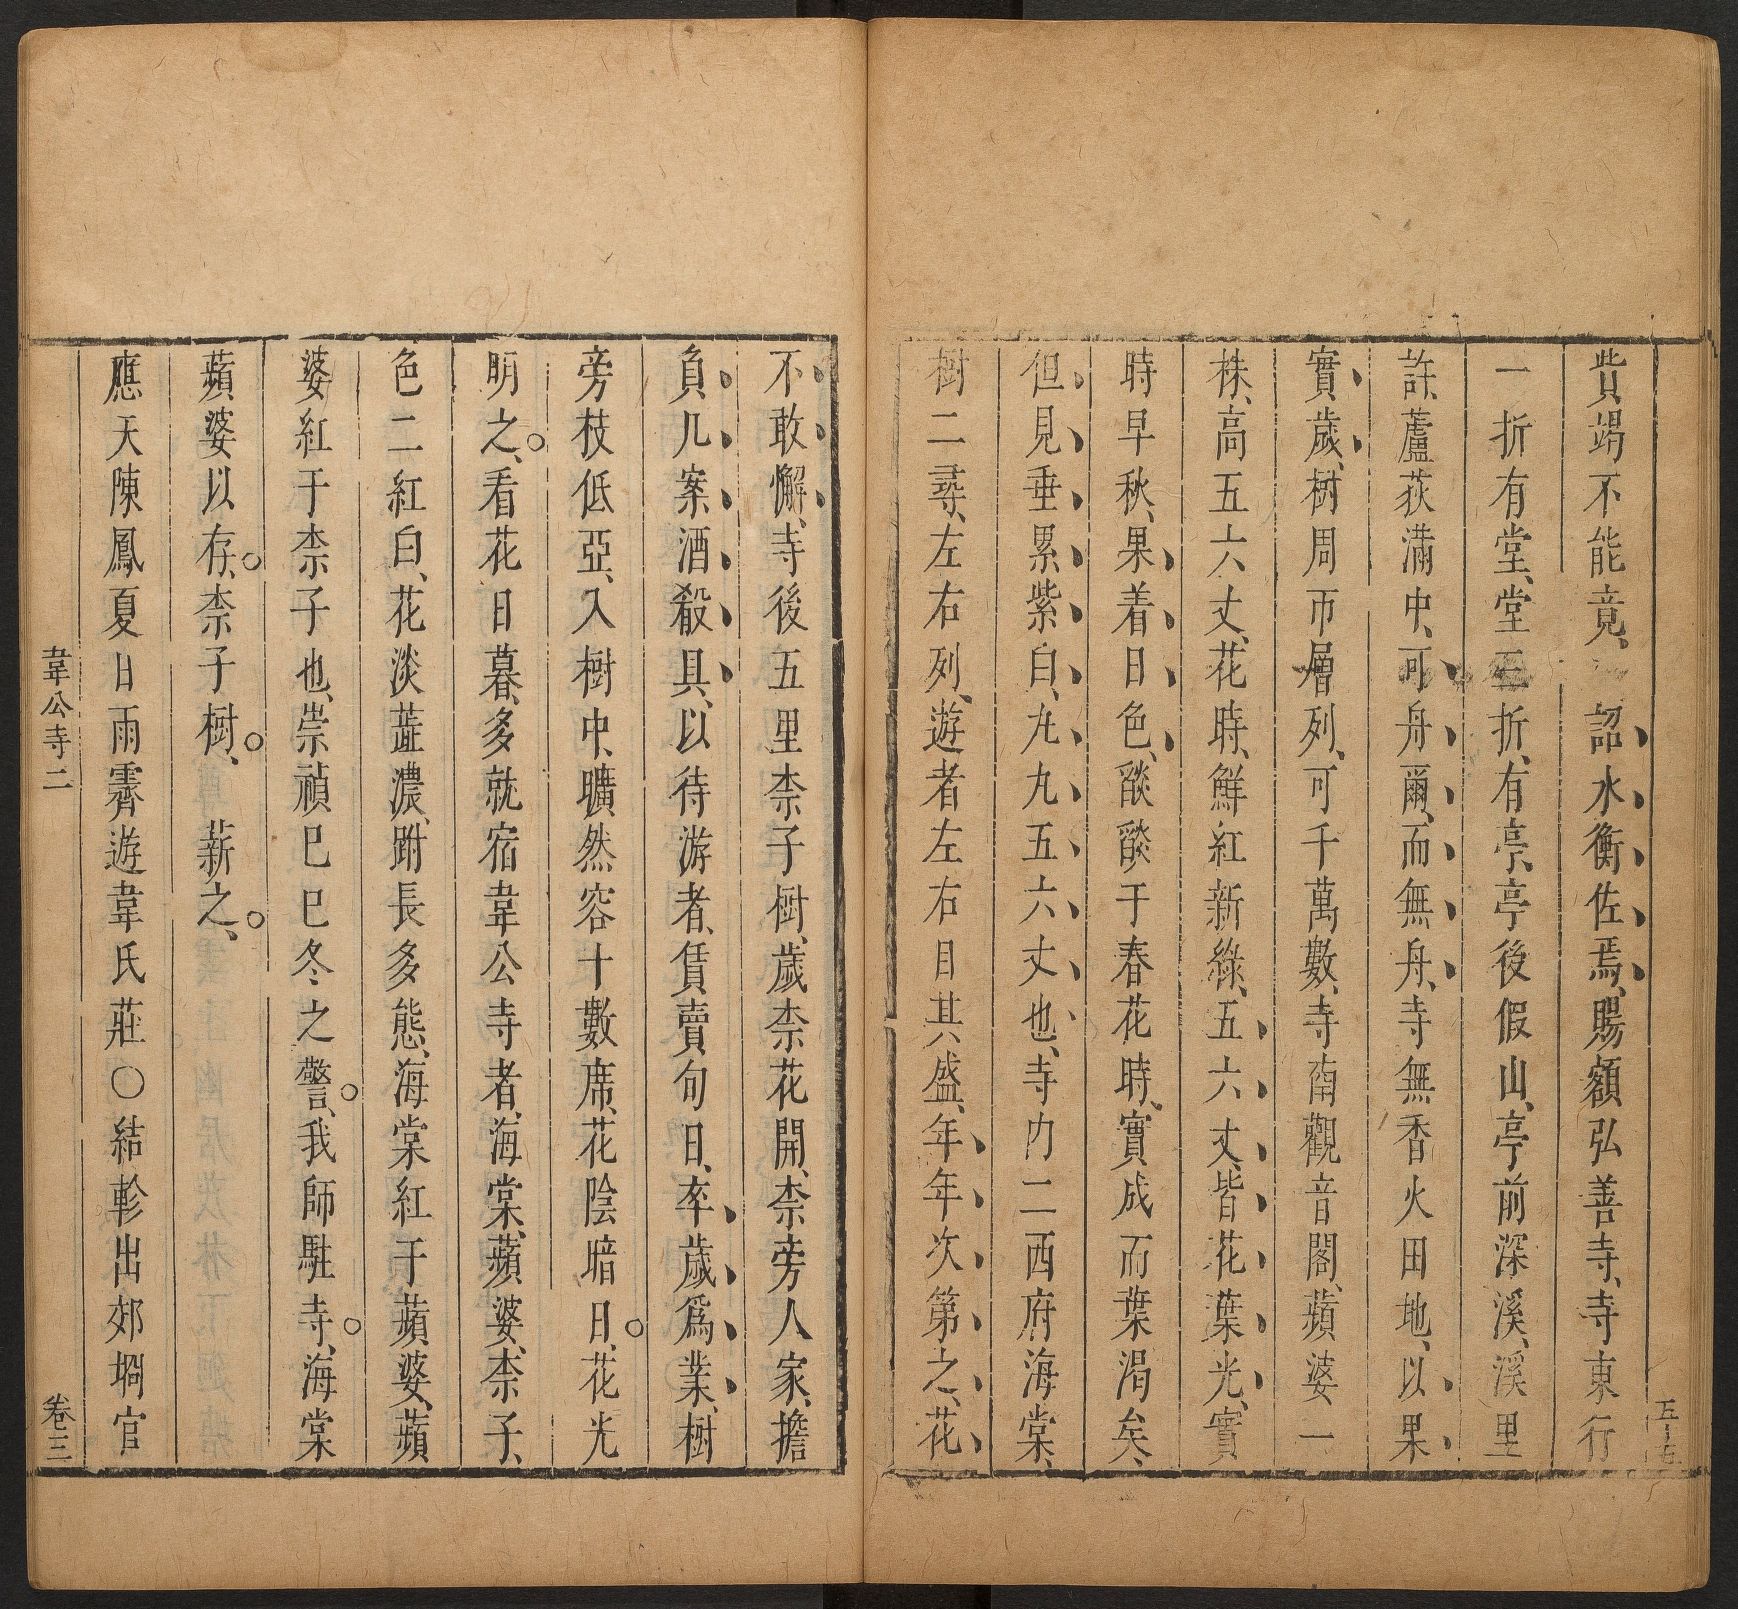 貲竭不能竟、詔水衡佐焉、賜額弘善寺、寺東行
一折有堂、堂三折、有亭、亭後假山、亭前深溪、溪里
許、蘆荻滿中、可舟爾、而無舟、寺無香火田地、以果
實歲、樹周帀層列、可千萬數、寺南觀音閣、蘋婆一
株、高五六丈、花時、鮮紅新綠、五六丈、皆花葉光、實
時早秋、果着日色、燄燄于春花時、實成而葉渴矣、
但見垂累紫白、丸丸五六丈也、寺內二西府海棠、
樹二尋、左右列、遊者左右目其盛、年年次第之、花
五十五
不敢懈、寺後五里柰子樹、歲柰花開、柰旁人家、擔
負几案、酒殽具、以待游者、賃賣旬日、卒歲爲業、樹
旁枝低亞、入樹中、曠然容十數席、花陰暗日、花光
明之、看花日暮、多就宿韋公寺者、海棠、蘋婆、柰子、
色二紅白、花淡蕋濃、跗長多態、海棠紅于蘋婆、蘋
婆紅于柰子也、崇禎己巳冬之警、我師駐寺、海棠
蘋婆以存、柰子樹、薪之、
應天陳鳳夏日雨霽遊韋氏莊〇結軫出郊坰官
韋公寺二
卷三